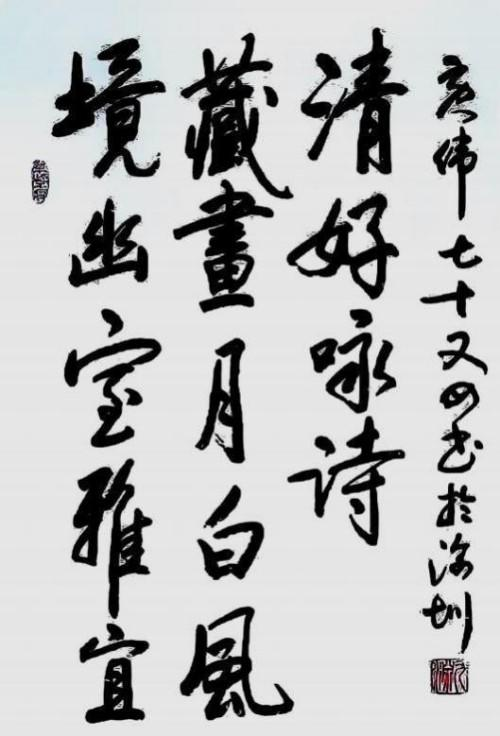 境幽室雅宜
藏畫月白風
清好咏詩
伟七十又四书於深圳